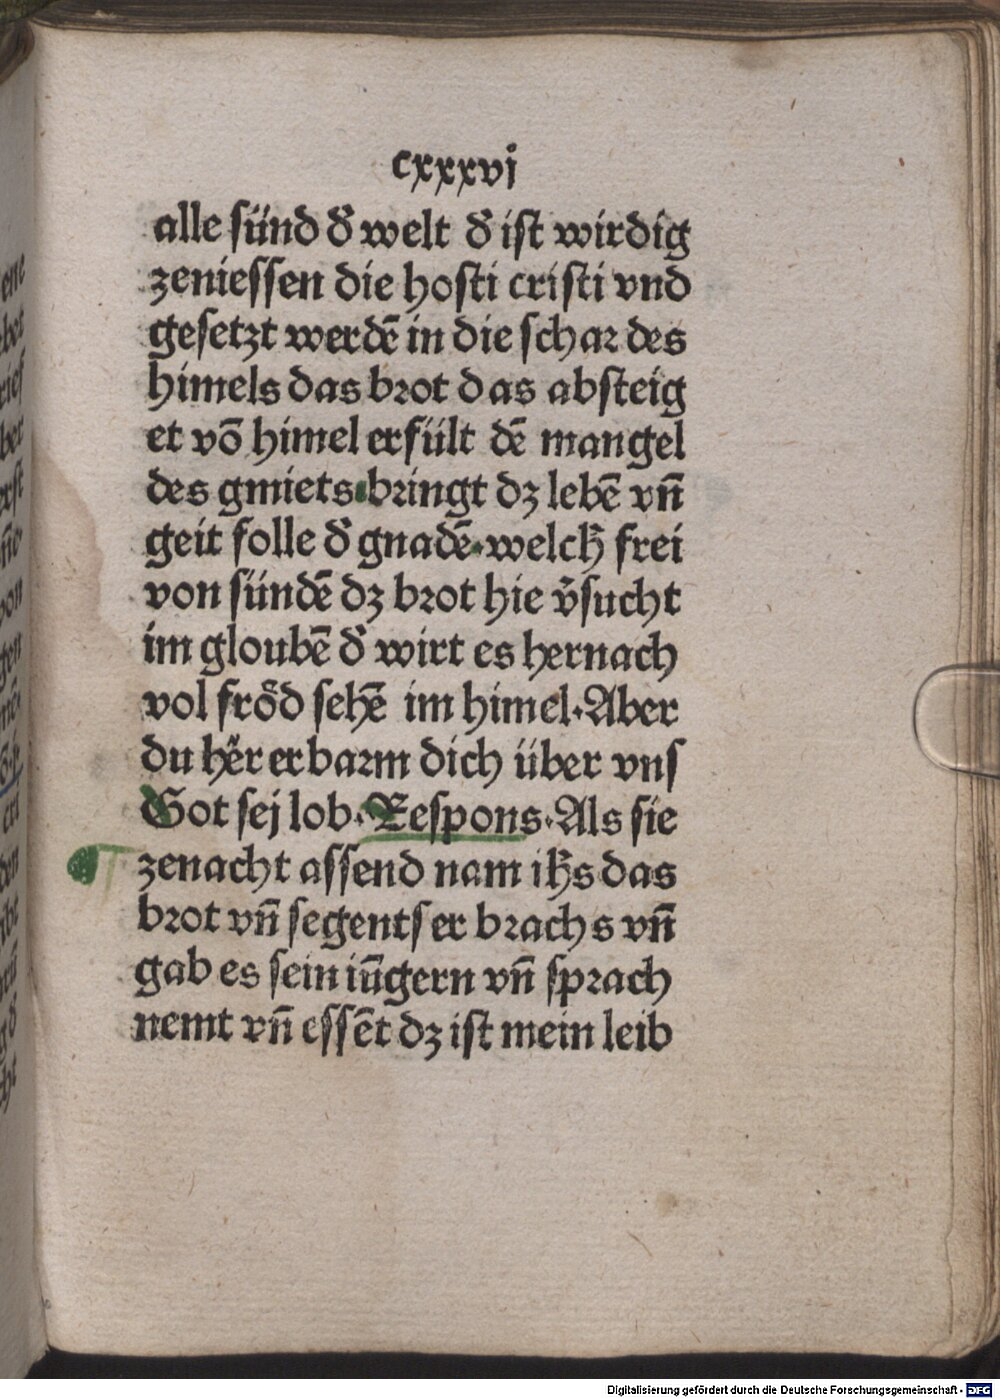 cxxxvi
alle sünd d' welt d' ist wirdig
zeniessen die hosti cristi vnd
gesetzt werdē in die schar des
himels das brot das absteig
et vō himel erfült dē mangel
des gmiets·bringt dz lebē vn̄
geit folle d' gnadē·welch' frei
von sündē dz brot hie v'sucht
im gloubē d' wirt es hernach
vol frőd sehē im himel·Aber
du hēr erbarm dich über vns
Got sej lob·Respons·Als sie
zenacht assend nam ihs das
brot vn̄ segents er brachs vn̄
gab es sein iūgern vn̄ sprach
nemt vn̄ essēt dz ist mein leib
Digitalisierung gefördert durch die Deutsche Forschungsgemeinschaft - DFG